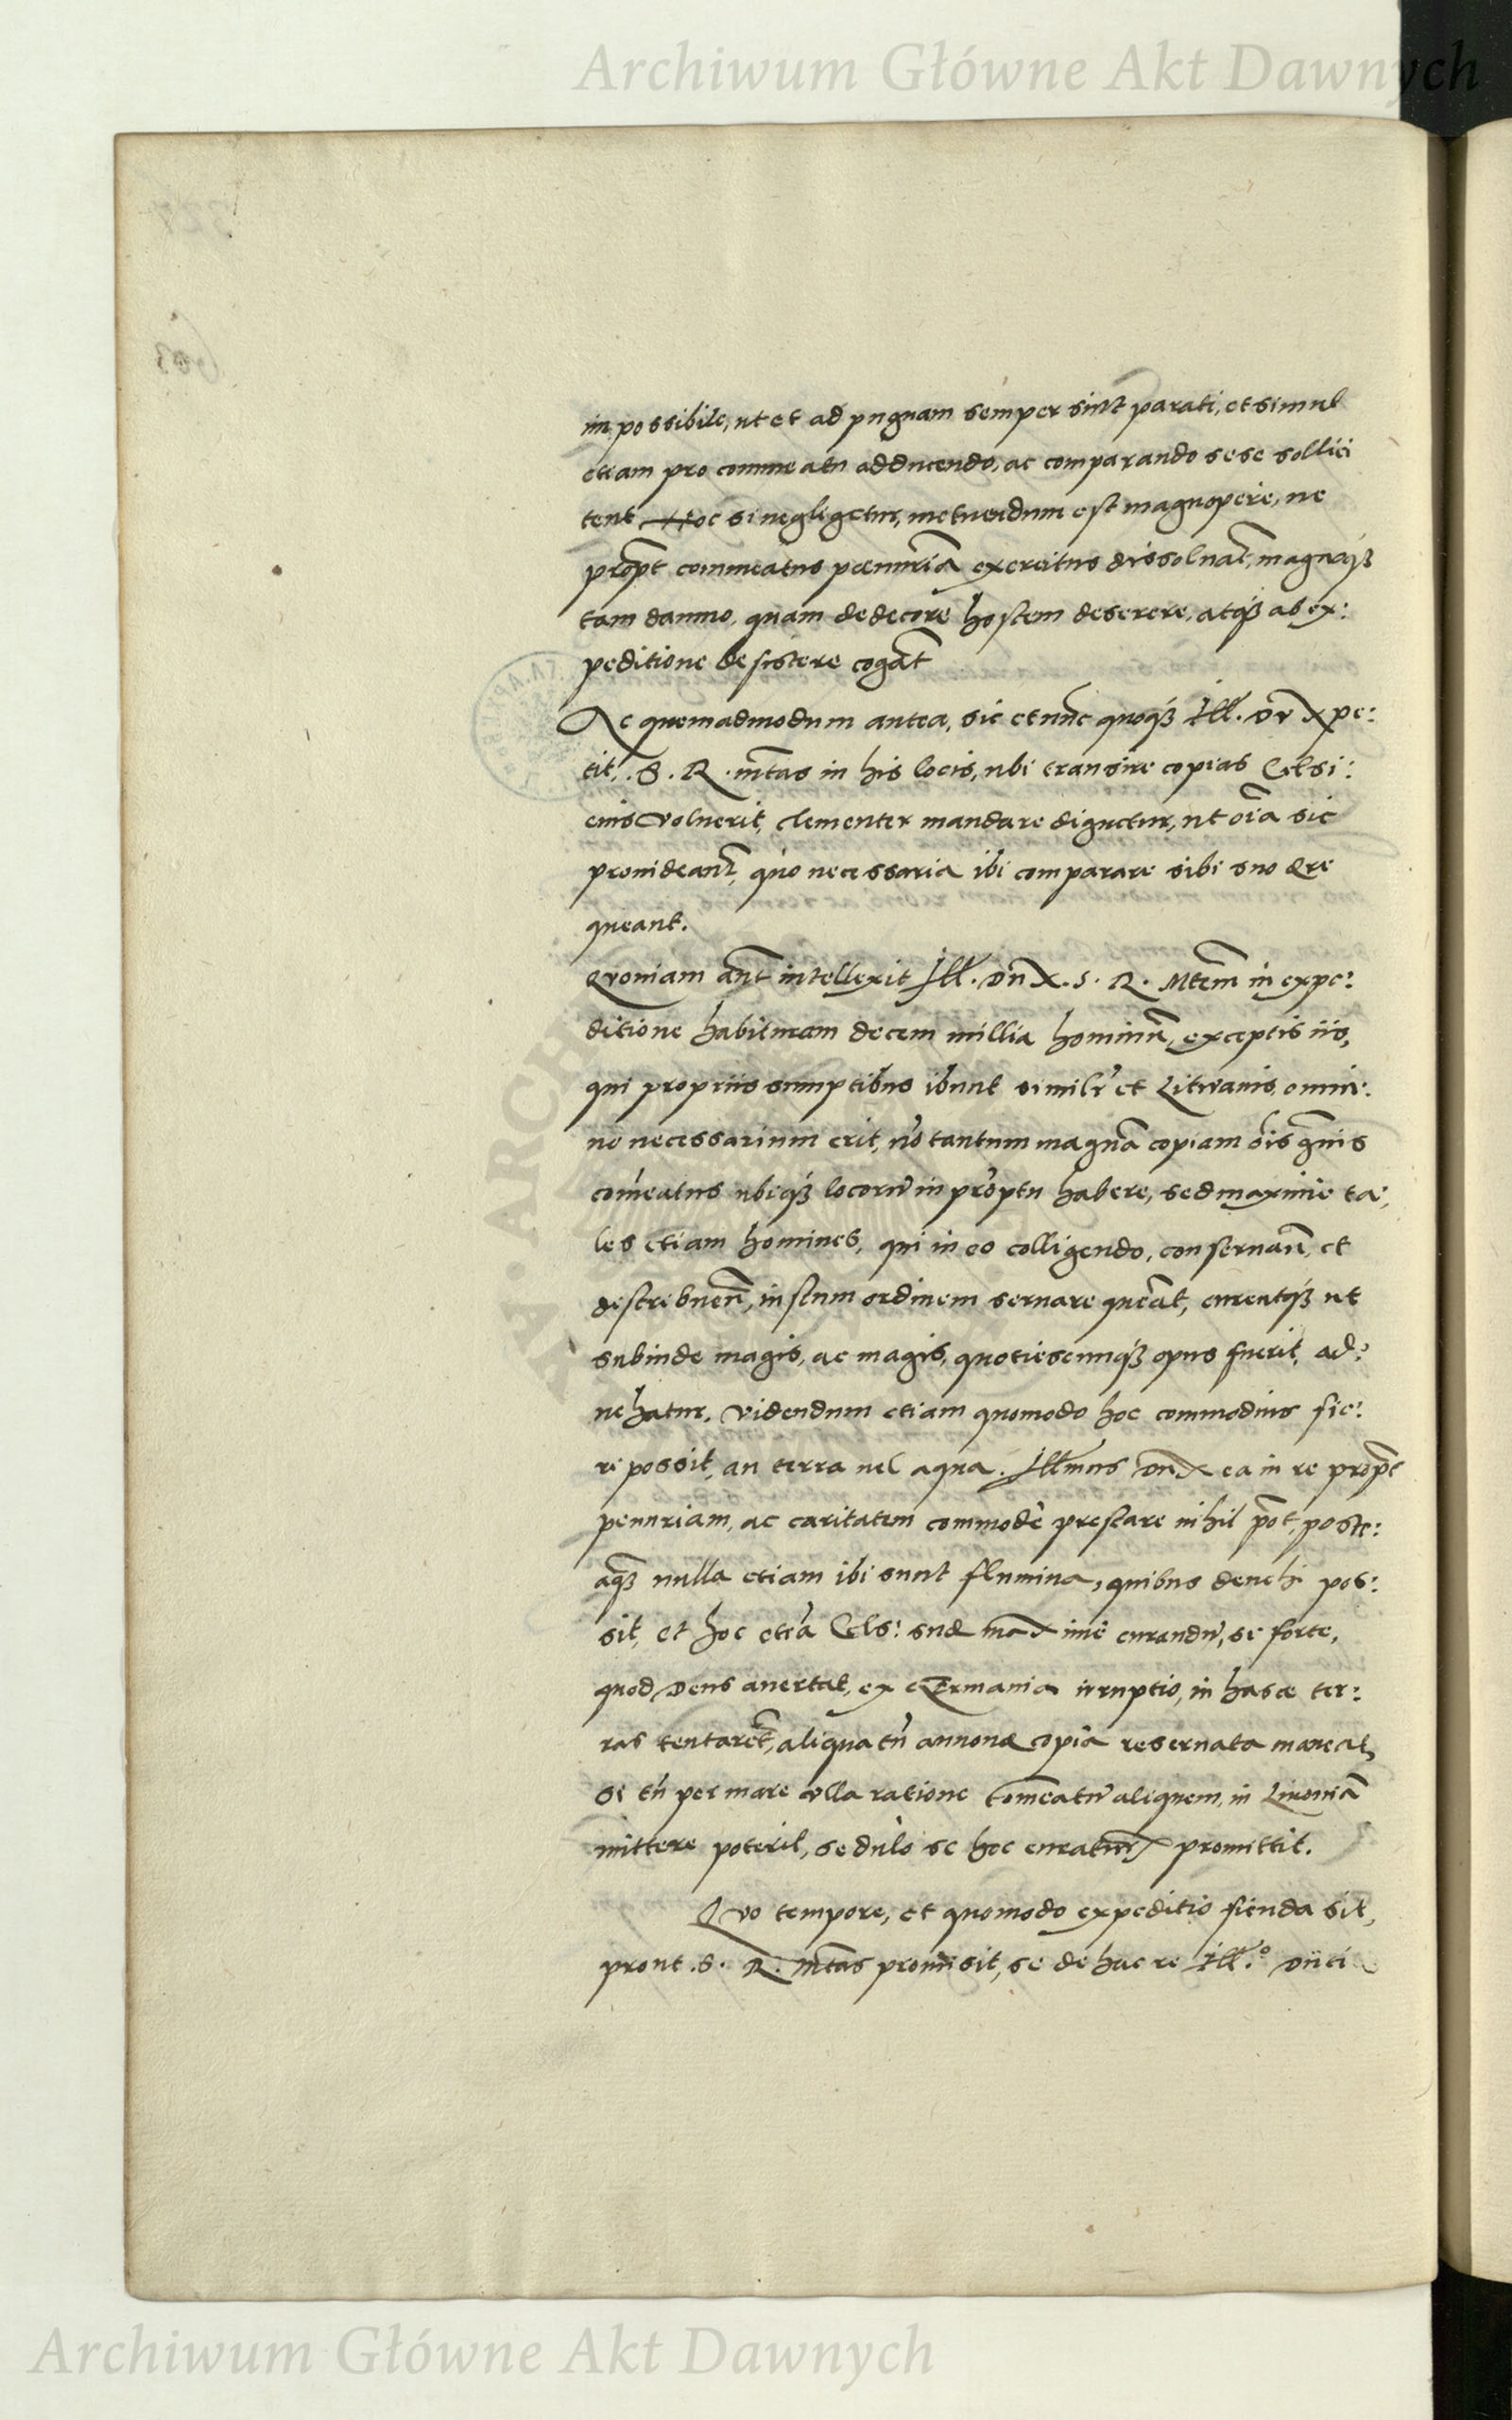 Archiwum Główne Akt Dawnych
impossibile, ut et ad pugnam semper sint parati, et simul
etiam pro commeatu adducendo, ac comparando sese sollici
tent Hoc si negligetur, metuendum est magnopere, ne
propt commeatus pœnuriā exercitus dissoluat, magnoqȝ
tam damno, quam dedecore hostem deserere, atqȝ ab ex:
peditione desistere cogāt
Ac quemadmodum antea, sic et nūc quoqȝ Ill. Dx pe:
tit, S. R. mtas in his locis, ubi transire copias Celsi:
eius voluerit, clementer mandare dignetur, ut oīa sic
prouideant, quo necessaria ibi comparare sibi suo ære
queant.
Quoniam aūt intellexit Ill. Dn x. S. R. Mtem in expe:
ditione habituram decem millia hominū, exceptis iis,
qui propriis sumptibus ibunt similr et Lituanis, omni:
no necessarium erit, nō tantum magnā copiam ōis gnis
comeatus ubiqȝ locorū in prōptu habere, sed maxime ta:
les etiam homines, qui in eo colligendo, conseruan, et
distribuen, iustum ordinem seruare queāt, curentqȝ ut
subinde magis, ac magis, quotiescunqȝ opus fuerit, ad:
uehatur, Videndum etiam quomodo hoc commodius fie:
ri possit, an terra uel aqua. Illmus Dn x ea in re propt
penuriam, ac caritatem commodè prestare nihil pōt, poste:
aqȝ nulla etiam ibi sunt flumina, quibus deuehi pos:
sit, et hoc etiā Cels: suæ maxime curandū, si forte,
quod Deus auertat, ex Germania irruptio, in hasce ter:
ras tentaret, aliqua tn̄ annonæ copia reseruata maneat,
Si tn̄ per mare ulla ratione comeatū aliquem, in Liuoniā
mittere poterit, sedulò se hoc curatur promittit.
Quo tempore, et quomodo expeditio fienda sit,
prout S. R. mtas promisit, se de hac re Ill.º Duci
Archiwum Główne Akt Dawnych